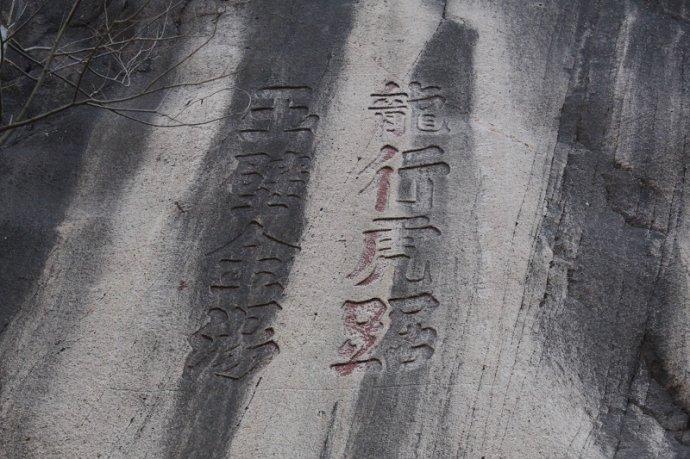 龍行虎踞
玉金湯